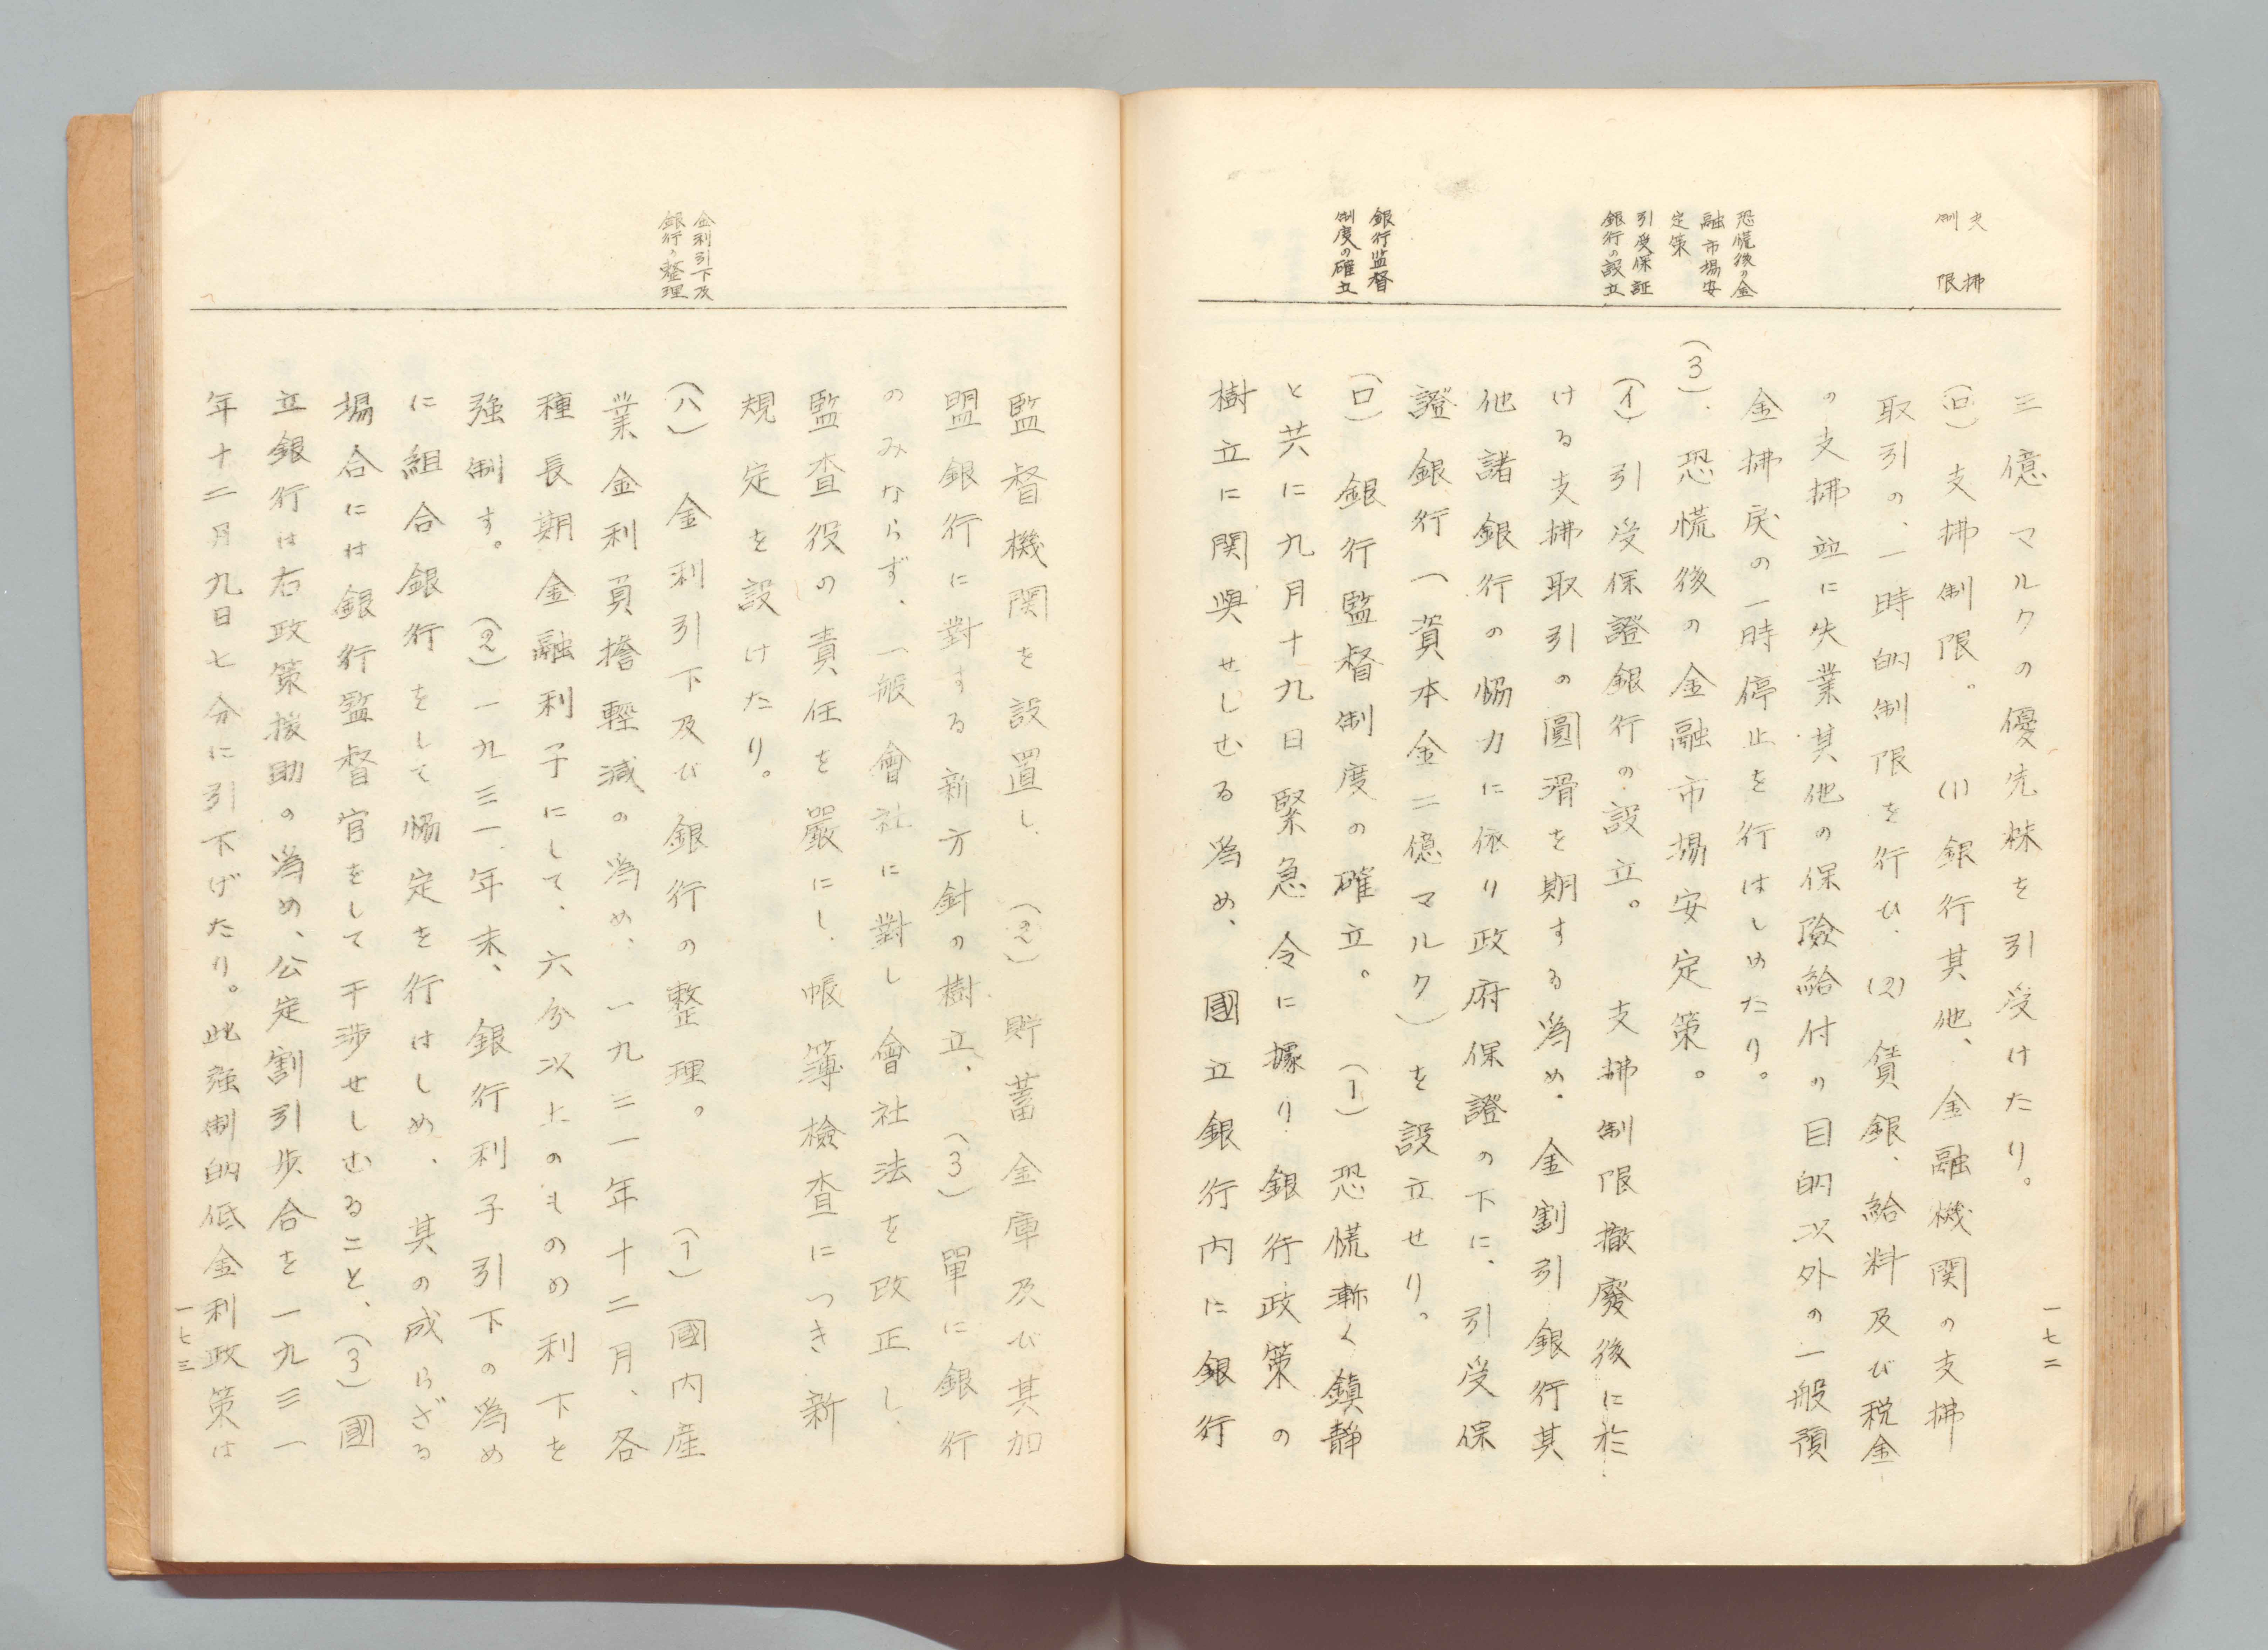 支拂
制限
恐慌後の金
融市場安
定策
引受保証
銀行の設立
銀行監督
制度の確立
三億マルクの優先株を引受けたり。
(ロ)支拂制限。(1)銀行其他、金融機関の支拂
取引の、一時的制限を行ひ、(2)賃銀、給料及び税金
の支拂並に失業其他の保険給付の目的以外の一般預
金拂戻の一時停止を行はしめたり。
(3).恐慌後の金融市場安定策。
(イ)引受保證銀行の設立。支拂制限撤廢後に於
ける支拂取引の圓滑を期する為め、金割引銀行其
他諸銀行の恊力に依り政府保證の下に、引受保
證銀行(資本金二億マルク)を設立せり。
(ロ)銀行監督制度の確立。(1)恐慌漸く鎮静
と共に九月十九日緊急令に據り銀行政策の
樹立に関與せしむる為め、國立銀行内に銀行
一七二
金利引下及
銀行の整理
監督機関を設置し、(2)貯蓄金庫及び其加
盟銀行に對する新方針の樹立、(3)單に銀行
のみならず、一般會社に對し會社法を改正し、
監査役の責任を嚴にし、帳簿檢査につき新
規定を設けたり。
(ハ)金利引下及び銀行の整理。(1)國内産
業金利負擔輕減の為め、一九三一年十二月、各
種長期金融利子にして、六分以上のものの利下を
強制す。(2)一九三一年末、銀行利子引下の為め
に組合銀行をして恊定を行はしめ、其の成らざる
場合には銀行監督官をして干渉せしむること、(3)國
立銀行は右政策援助の為め、公定割引歩合を一九三一
年十二月九日七分に引下げたり。此強制的低金利政策は
一七三